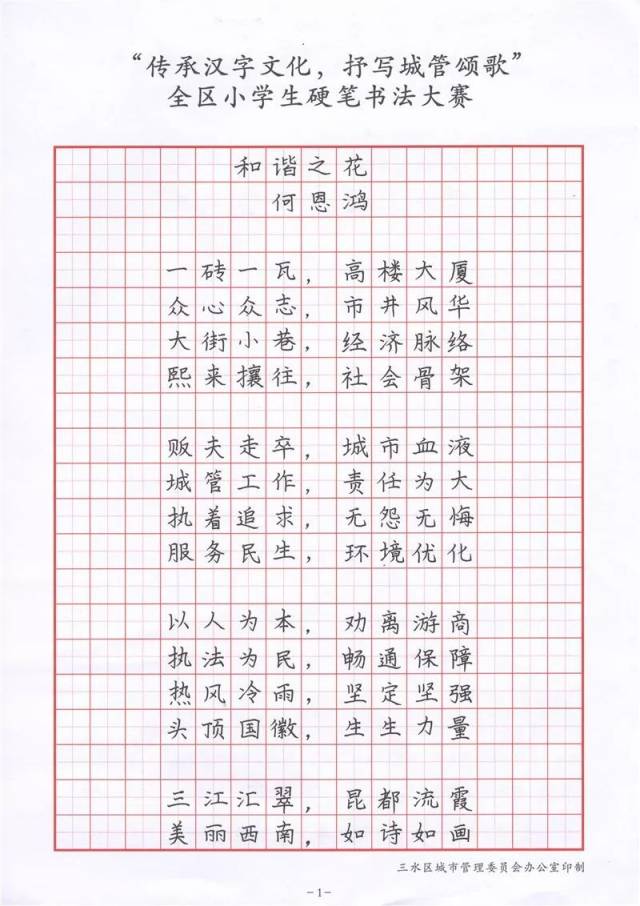 “传承汉字文化，抒写城管颂歌”
全区小学生硬笔书法大赛
和谐之花
何恩鸿
一砖一瓦，高楼大厦
众心众志，市井风华
大街小巷，经济脉络
熙来攘往，社会骨架
贩夫走卒，城市血液
城管工作，责任为大
执着追求，无怨无悔
服务民生，环境优化
以人为本，劝离游商
执法为民，畅通保障
热风冷雨，坚定坚强
头顶国徽，生生力量
三江汇翠，昆都流霞
美丽西南，如诗如画
三水区城市管理委员会办公室印制
-1-